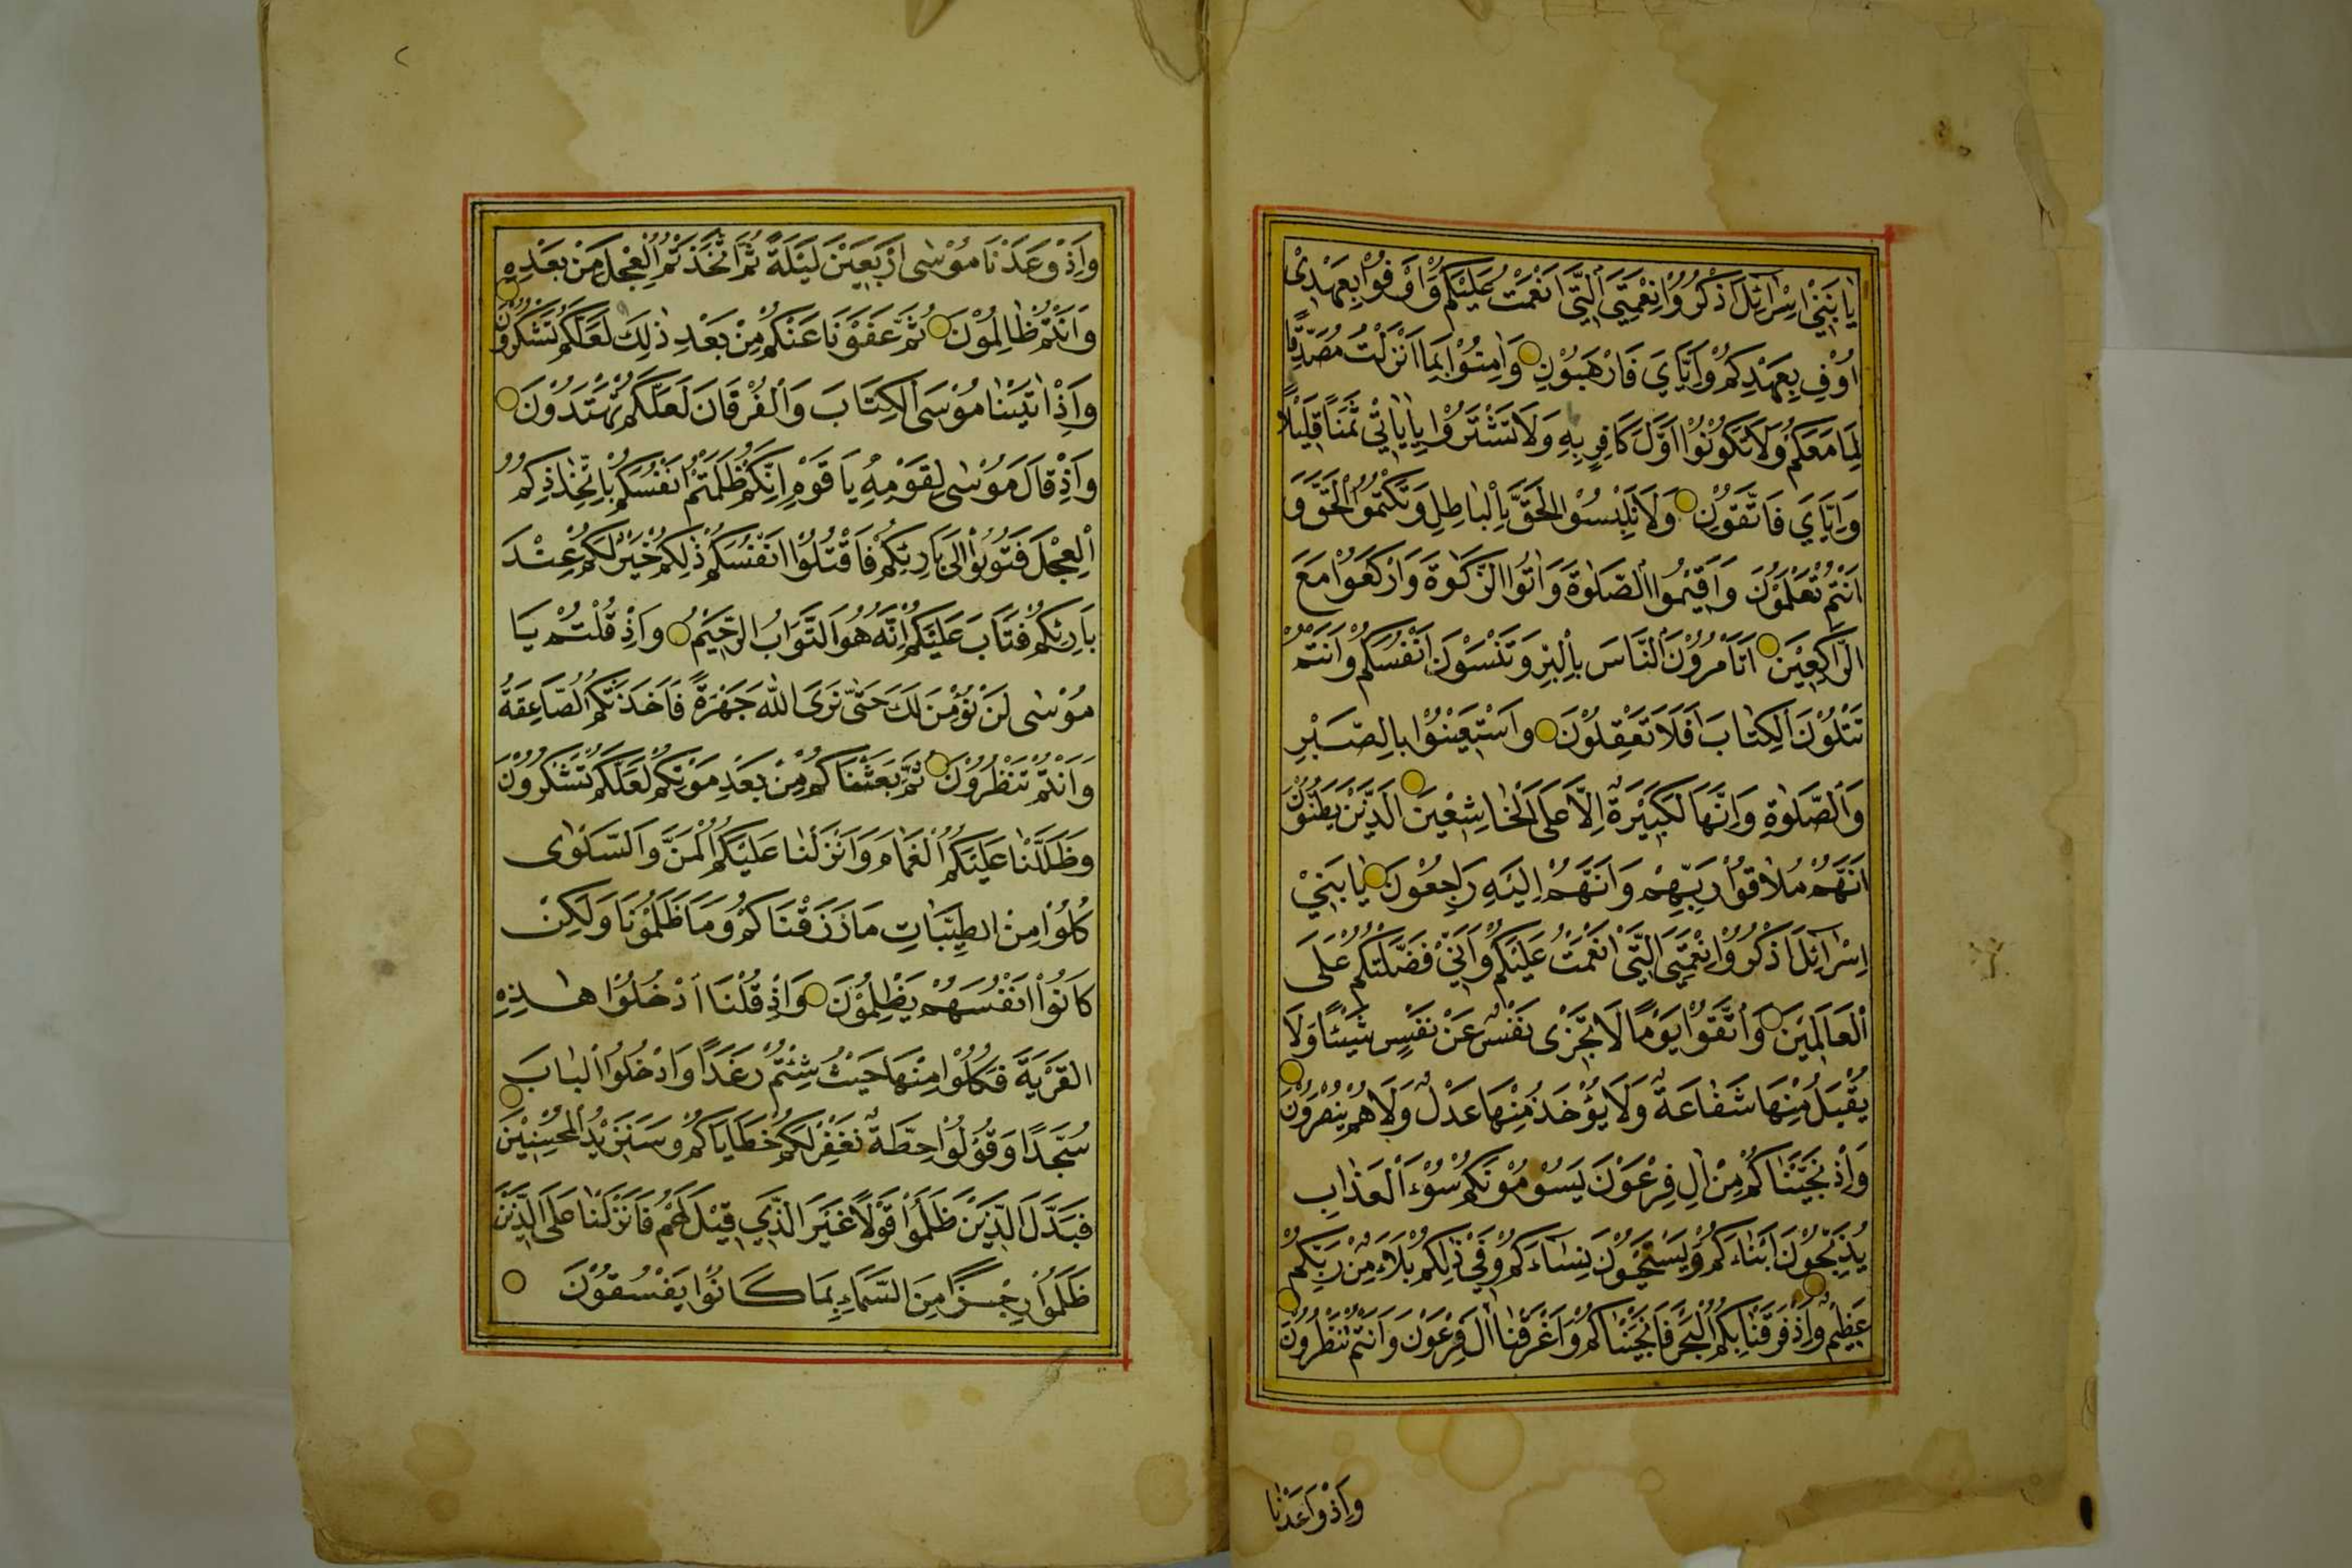 يَا بَنِيْ اِسْرَائِلَ اذْكُرُوْا نِعْمَتِيَ الَّتِيْ اَنْعَمْتُ عَلَيْكُمْ وَاَوْفُوْا بِعَهْدِيْ
اُوْفِ بِعَهْدِكُمْ وَاِيَّايَ فَارْهَبُوْنِ وَاٰمِنُوْا بِمَا اَنْزَلْتُ مُصَدِّقًا
لِمَا مَعَكُمْ وَلَا تَكُوْنُوْا اَوَّلَ كَافِرٍ بِهِ وَلَا تَشْتَرُوْا بِاٰيَاتِيْ ثَمَنًا قَلِيْلًا
وَاِيَّايَ فَاتَّقُوْنِ وَلَا تَلْبِسُوْا الْحَقَّ بِالْبَاطِلِ وَتَكْتُمُوْا الْحَقَّ وَ
اَنْتُمْ تَعْلَمُوْنَ وَاَقِيْمُوا الصَّلٰوةَ وَاٰتُوا الزَّكٰوةَ وَارْكَعُوْا مَعَ
الرَّاكِعِيْنَ اَتَأْمُرُوْنَ النَّاسَ بِالْبِرِّ وَتَنْسَوْنَ اَنْفُسَكُمْ وَاَنْتُمْ
تَتْلُوْنَ الْكِتَابَ اَفَلَا تَعْقِلُوْنَ وَاسْتَعِيْنُوْا بِالصَّبْرِ
وَالصَّلٰوةِ وَاِنَّهَا لَكَبِيْرَةٌ اِلَّا عَلَى الْخَاشِعِيْنَ الَّذِيْنَ يَظُنُّوْنَ
اَنَّهُمْ مُلَاقُوْا رَبِّهِمْ وَاَنَّهُمْ اِلَيْهِ رَاجِعُوْنَ يَا بَنِيْ
اِسْرَائِلَ اذْكُرُوْا نِعْمَتِيَ الَّتِيْ اَنْعَمْتُ عَلَيْكُمْ وَاَنِّيْ فَضَّلْتُكُمْ عَلَى
الْعَالَمِيْنَ وَاتَّقُوْا يَوْمًا لَا تَجْزِى نَفْسٌ عَنْ نَفْسٍ شَيْئًا وَلَا
يُقْبَلُ مِنْهَا شَفَاعَةٌ وَلَا يُؤْخَذُ مِنْهَا عَدْلٌ وَلَا هُمْ يُنْصَرُوْنَ
وَاِذْ نَجَّيْنَاكُمْ مِنْ اٰلِ فِرْعَوْنَ يَسُوْمُوْنَكُمْ سُوْءَ الْعَذَابِ
يُذَبِّحُوْنَ اَبْنَاءَكُمْ وَيَسْتَحْيُوْنَ نِسَاءَكُمْ وَفِيْ ذٰلِكُمْ بَلَاءٌ مِنْ رَبِّكُمْ
عَظِيْمٌ وَاِذْ فَرَقْنَا بِكُمُ الْبَحْرَ فَاَنْجَيْنَاكُمْ وَاَغْرَقْنَا اٰلَ فِرْعَوْنَ وَاَنْتُمْ تَنْظُرُوْنَ
وَاِذْ وَاعَدْنَا
وَاِذْ وٰعَدْنَا مُوْسٰى اَرْبَعِيْنَ لَيْلَةً ثُمَّ اتَّخَذْتُمُ الْعِجْلَ مِنْ بَعْدِهِ
وَاَنْتُمْ ظَالِمُوْنَ ثُمَّ عَفَوْنَا عَنْكُمْ مِنْ بَعْدِ ذٰلِكَ لَعَلَّكُمْ تَشْكُرُوْنَ
وَاِذْ اٰتَيْنَا مُوْسَى الْكِتَابَ وَالْفُرْقَانَ لَعَلَّكُمْ تَهْتَدُوْنَ
وَاِذْ قَالَ مُوْسٰى لِقَوْمِهِ يَا قَوْمِ اِنَّكُمْ ظَلَمْتُمْ اَنْفُسَكُمْ بِاتِّخَاذِكُمُ
الْعِجْلَ فَتُوْبُوْا اِلٰى بَارِئِكُمْ فَاقْتُلُوْا اَنْفُسَكُمْ ذٰلِكُمْ خَيْرٌ لَكُمْ عِنْدَ
بَارِئِكُمْ فَتَابَ عَلَيْكُمْ اِنَّهُ هُوَ التَّوَّابُ الرَّحِيْمُ وَاِذْ قُلْتُمْ يَا
مُوْسٰى لَنْ نُؤْمِنَ لَكَ حَتّٰى نَرَى اللّٰهَ جَهْرَةً فَاَخَذَتْكُمُ الصَّاعِقَةُ
وَاَنْتُمْ تَنْظُرُوْنَ ثُمَّ بَعَثْنَاكُمْ مِنْ بَعْدِ مَوْتِكُمْ لَعَلَّكُمْ تَشْكُرُوْنَ
وَظَلَّلْنَا عَلَيْكُمُ الْغَمَامَ وَاَنْزَلْنَا عَلَيْكُمُ الْمَنَّ وَالسَّلْوٰى
كُلُوْا مِنْ طَيِّبَاتِ مَا رَزَقْنَاكُمْ وَمَا ظَلَمُوْنَا وَلٰكِنْ
كَانُوْا اَنْفُسَهُمْ يَظْلِمُوْنَ وَاِذْ قُلْنَا ادْخُلُوْا هٰذِهِ
الْقَرْيَةَ فَكُلُوْا مِنْهَا حَيْثُ شِئْتُمْ رَغَدًا وَادْخُلُوا الْبَابَ
سُجَّدًا وَقُوْلُوْا حِطَّةٌ نَغْفِرْ لَكُمْ خَطَايَاكُمْ وَسَنَزِيْدُ الْمُحْسِنِيْنَ
فَبَدَّلَ الَّذِيْنَ ظَلَمُوْا قَوْلًا غَيْرَ الَّذِيْ قِيْلَ لَهُمْ فَاَنْزَلْنَا عَلَى الَّذِيْنَ
ظَلَمُوْا رِجْزًا مِنَ السَّمَاءِ بِمَا كَانُوْا يَفْسُقُوْنَ